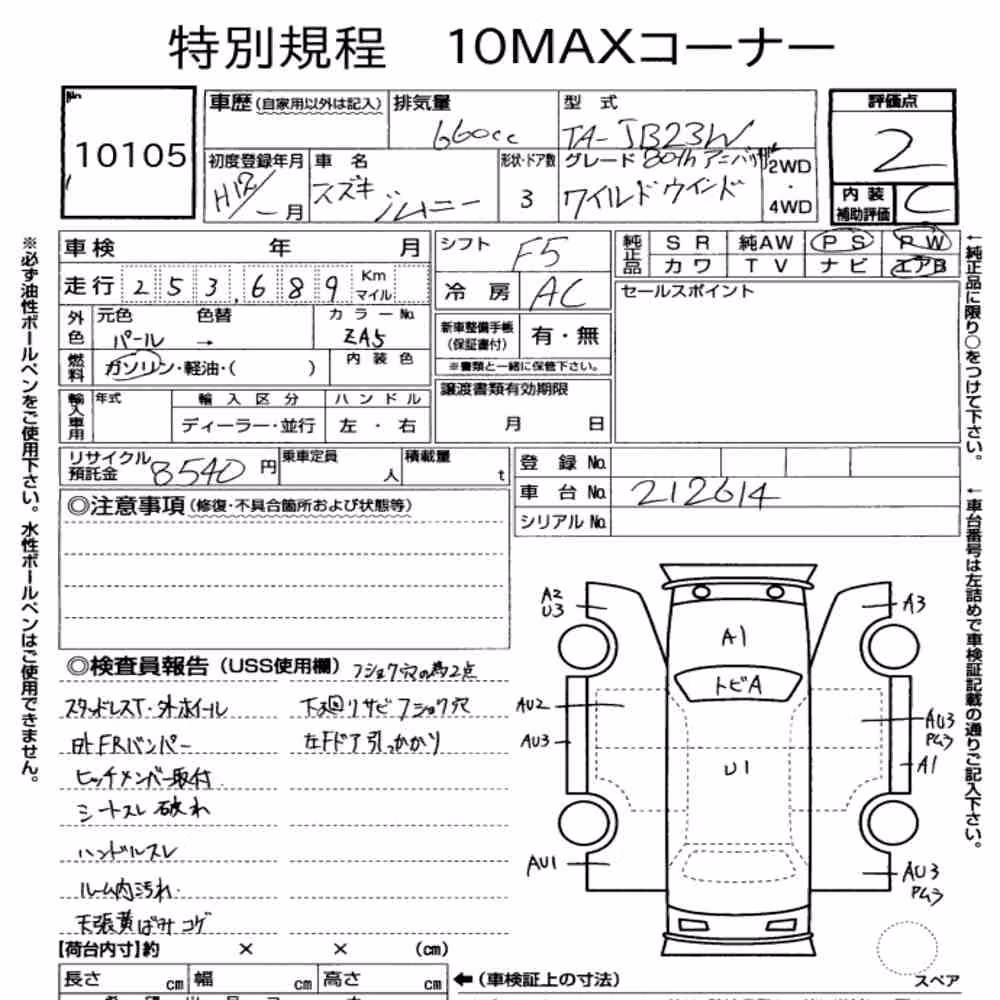 特別規程 10MAXコーナー
No.
10105
車歴(自家用以外は記入)
排気量
660cc
型式
TA-JB23W
評価点
2
初度登録年月
H12/一月
車名
スズキ ジムニー
形状・ドア数
3
グレード 80th アニバーサリー
ワイルドウインド
2WD
・
4WD
内装
補助評価
C
車検 年 月
シフト
F5
純正品
SR 純AW PS PW
カワ TV ナビ エアB
走行 253,689 Km
マイル
冷房
AC
セールスポイント
外色
元色 色替 カラーNo.
パール → ZA5
新車整備手帳
(保証書付)
有・無
※書類と一緒に保管下さい。
燃料
ガソリン・軽油・( )
内装色
譲渡書類有効期限
月 日
輸入車用
年式 輸入区分 ハンドル
ディーラー・並行 左・右
リサイクル
預託金
8540円
乗車定員
人
積載量
t
登録No.
車台No. 212614
シリアルNo.
◎注意事項(修復・不具合箇所および状態等)
◎検査員報告(USS使用欄) フショク穴の為2点
スタッドレスT・外ホイール
下廻リサビフショク穴
社外FRバンパー
左Fドア引っかかり
ヒッチメンバー取付
シートスレ 破れ
ハンドルスレ
ルーム内汚れ.
天張黄ばみコゲ
【荷台内寸】約 × × (cm)
長さ cm 幅 cm 高さ cm
←(車検証上の寸法)
※必ず油性ボールペンをご使用下さい。水性ボールペンはご使用できません。
←純正品に限り○をつけて下さい。
←車台番号は左詰めで車検証記載の通りご記入下さい。
A2
U3
A3
A1
トビA
AU2
AU3
AU3
Pムラ
A1
U1
AU1
AU3
Pムラ
スペア